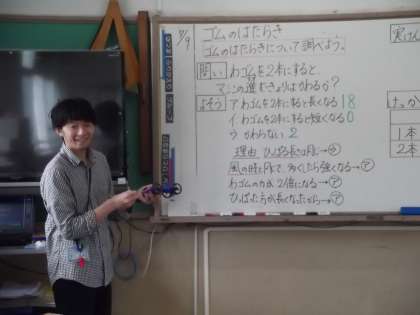 9/9
ゴムのはたらき
ゴムのはたらきについて調べよう。
問い わゴムを2本にすると、
マシンの進むきょりはかわるか?
よそう ア わゴムを2本にすると長くなる 18
イ わゴムを2本にすると短くなる 0
ウ かわらない 2
理由 ひっぱる長さは同じ→ウ
風の時と同じで、多くしたら強くなる→ア
わゴムの力が2倍になる→ア
ひっぱった方が長くなったから→ア
実けん
けっか
1本
2本